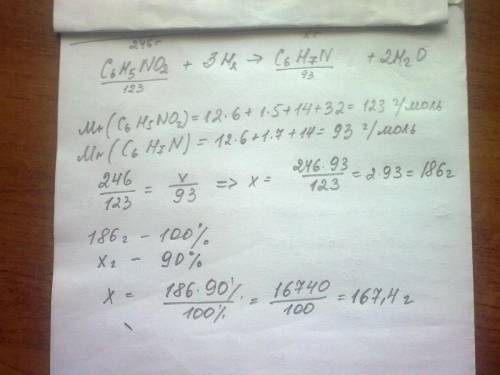 246г xг
C₆H₅NO₂ + 3H₂ → C₆H₇N + 2H₂O
123 93
Mr(C₆H₅NO₂) = 12·6+1·5+14+32 = 123 г/моль
Mr(C₆H₇N) = 12·6+1·7+14 = 93 г/моль
246/123 = x/93 => x = 246·93/123 = 2·93 = 186г
186г – 100%
xг – 90%
x = 186·90%/100% = 16740/100 = 167,4 г